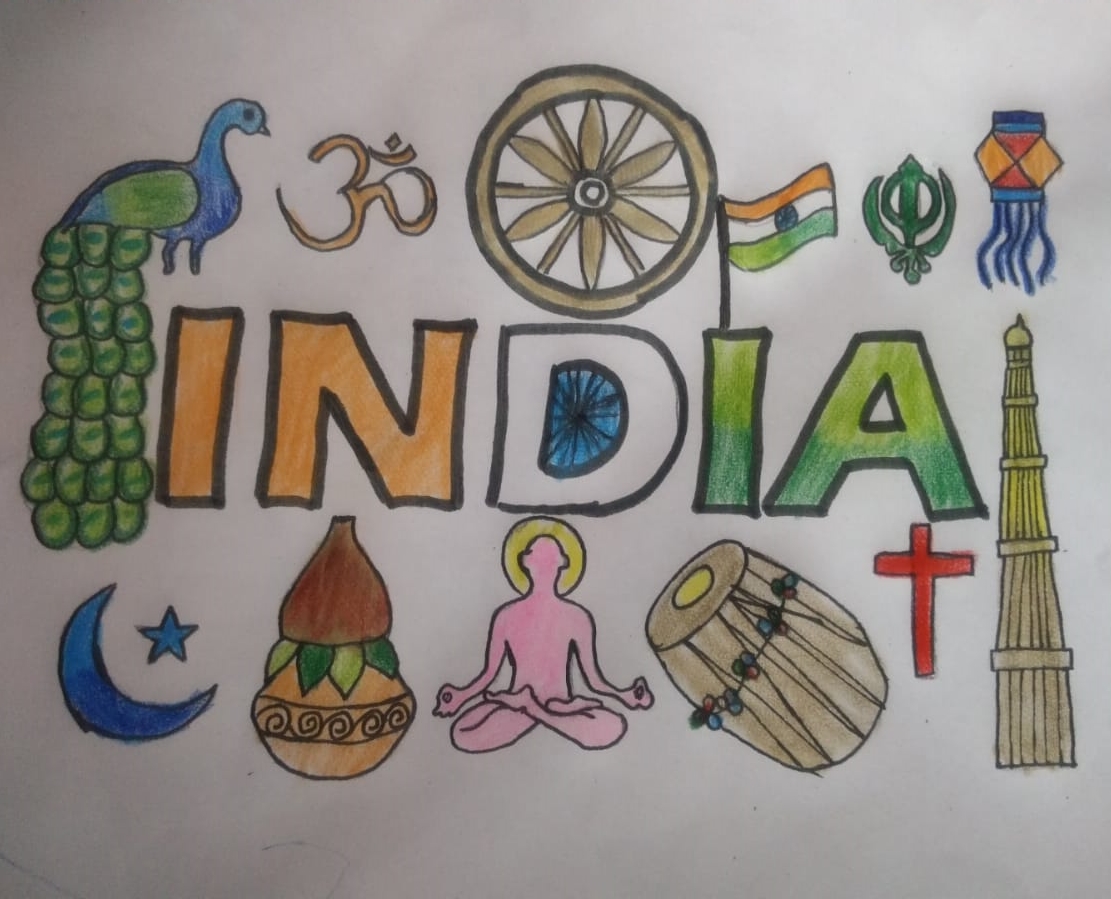 ॐ
INDIA